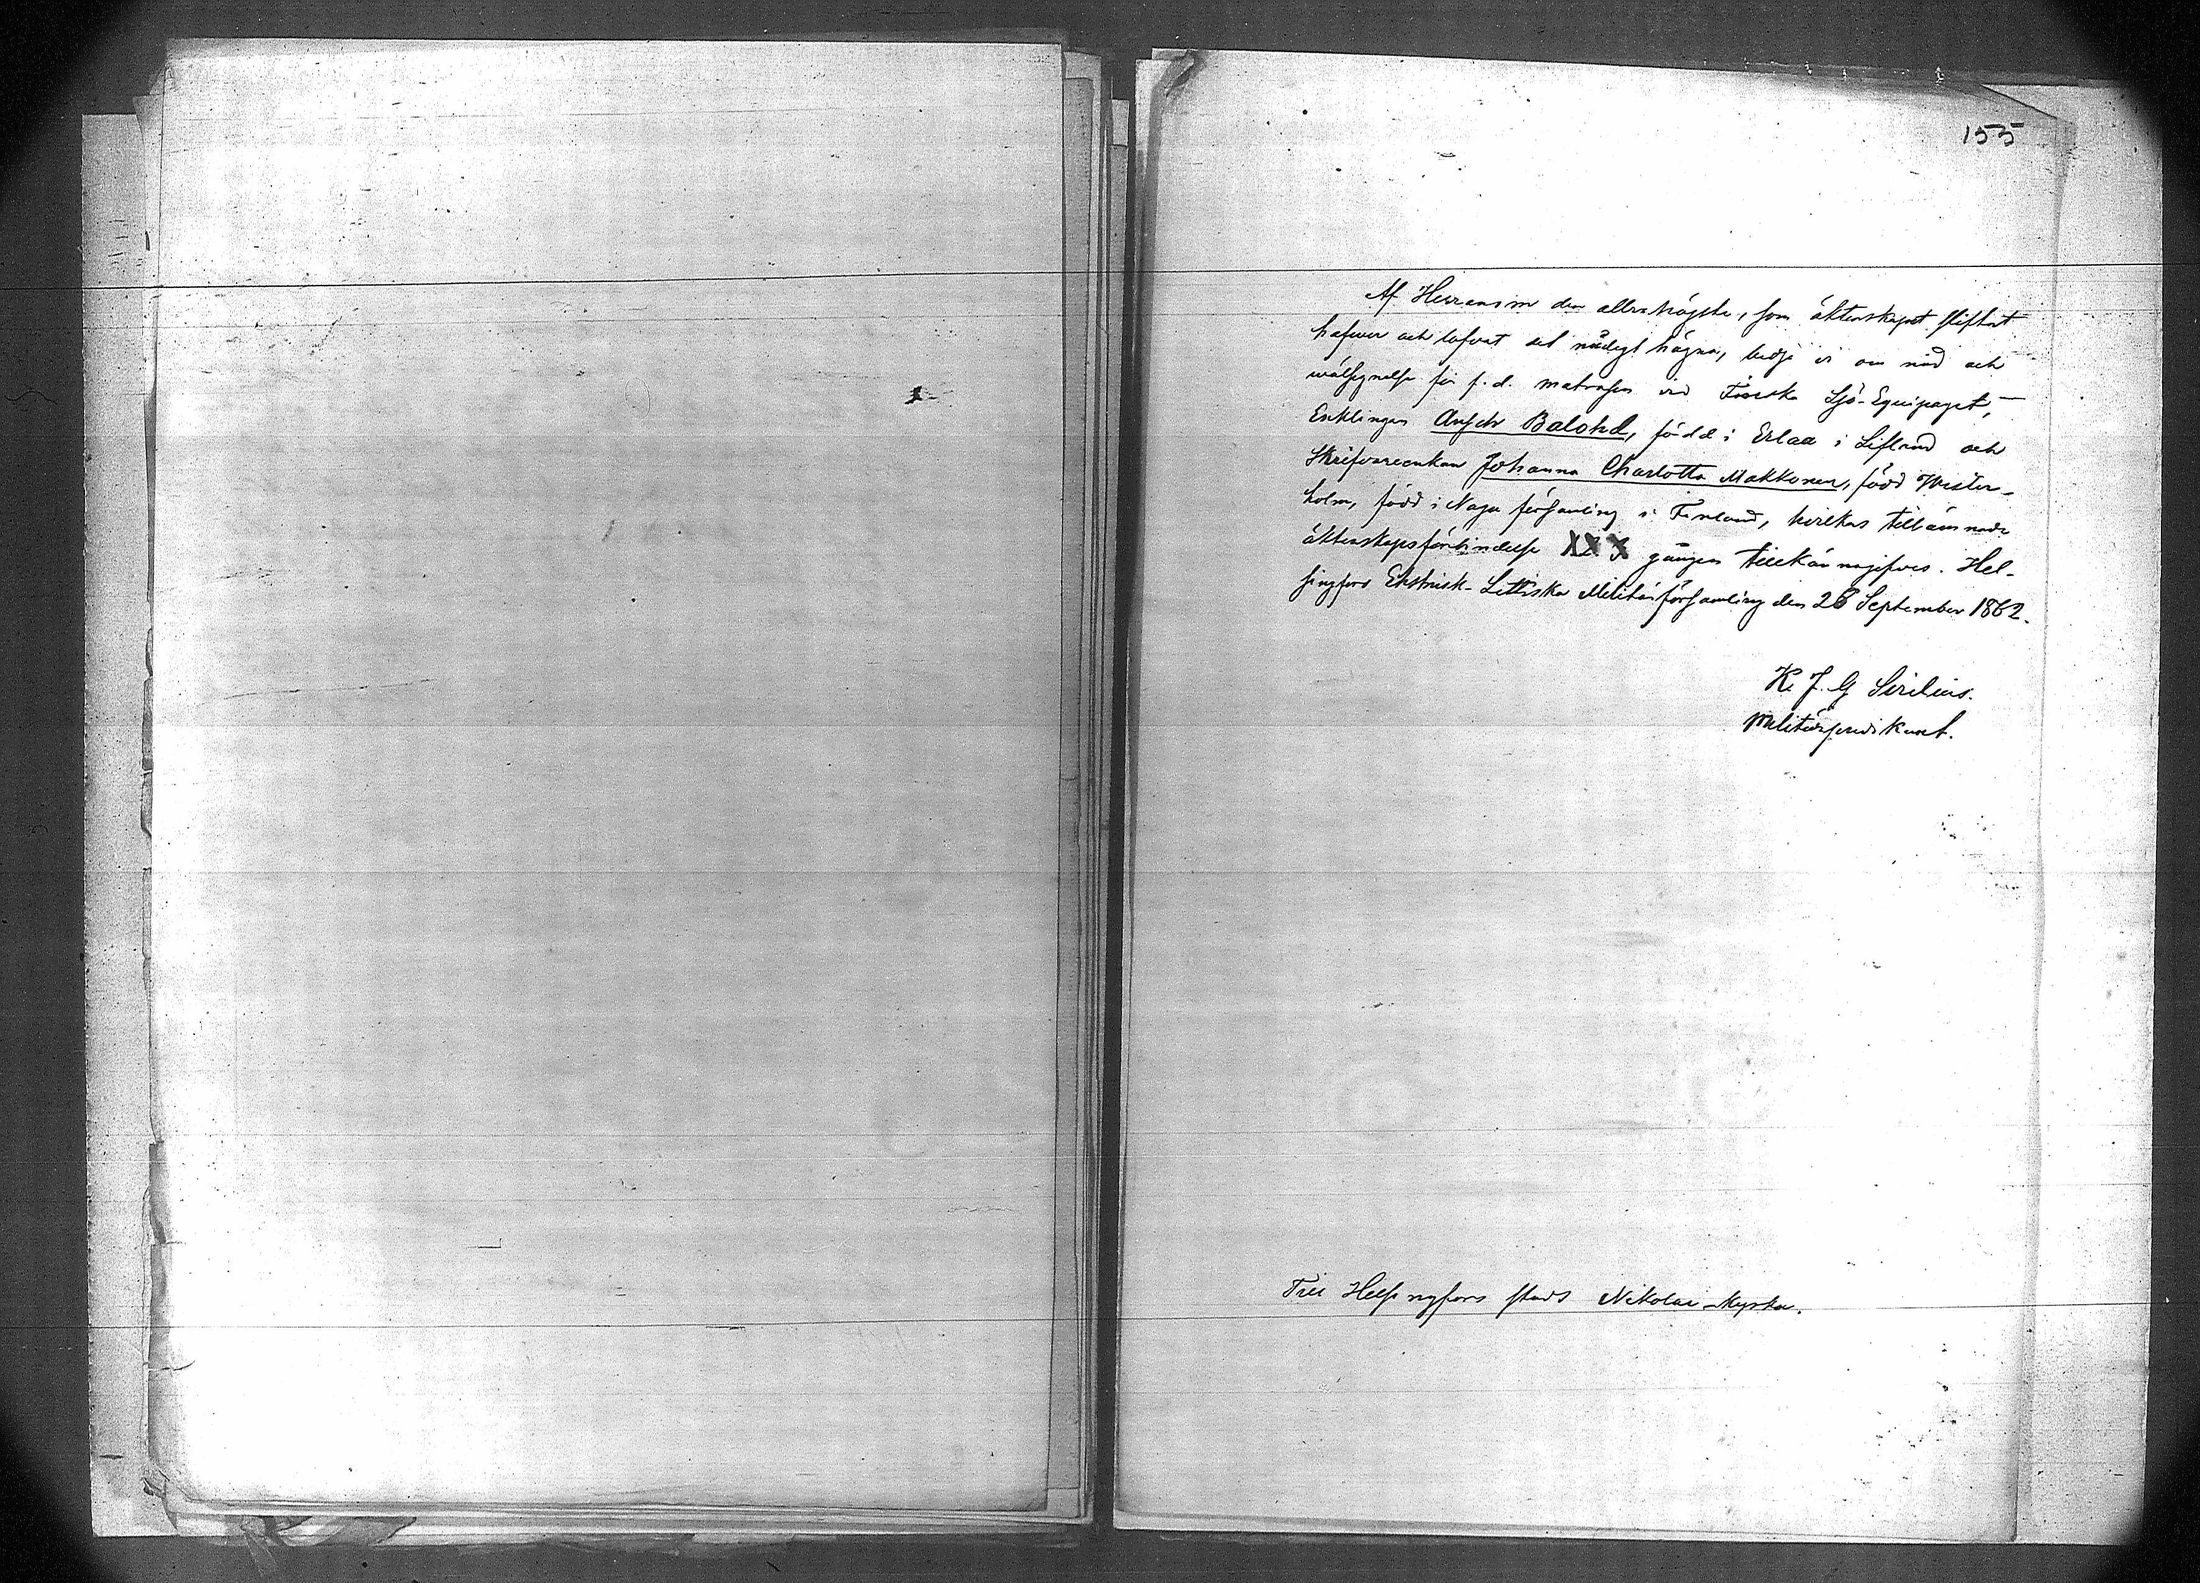 155
Af Herranom den allrahögste, som äktenskapet stiftat
hafver och lofvat det nådigt hägna, bedje vi om nåd och
välsignelse för f. d. matrosen vid Finska Sjö-Equipaget,
Enklingen Ansch Balohd, född i Erlaa i Lifland och
Skrifvareenkan Johanna Charlotta Makkonen, född Wester-
holm, född i Nagu församling i Finland, hvilkas tillämnade
äktenskapsförbindelse XXX gången tillkännagifves. Hel-
singfors Ehstnisk-Lettiska Militärförsamling den 26 September 1862.
K. J. G Sirelius.
Militärpredikant.
Till Helsingfors stads Nikolai Kyrka.